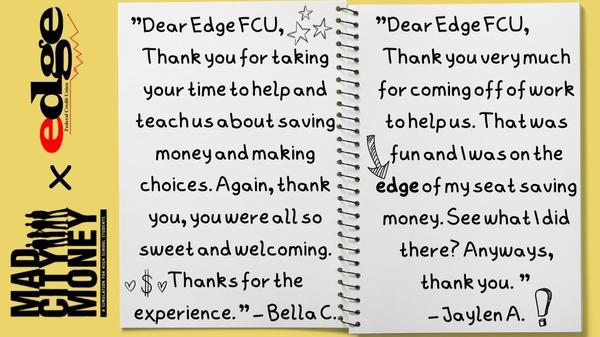 edge
Federal Credit Union
x
MAD
CITY
MONEY
A SIMULATION FOR HIGH SCHOOL STUDENTS
"Dear Edge FCU,
Thank you for taking
your time to help and
teach us about saving
money and making
choices. Again, thank
you, you were all so
sweet and welcoming.
$ Thanks for the
experience." - Bella C.
"Dear Edge FCU,
Thank you very much
for coming off of work
to help us. That was
fun and I was on the
edge of my seat saving
money. See what I did
there? Anyways,
thank you. "
-Jaylen A. !